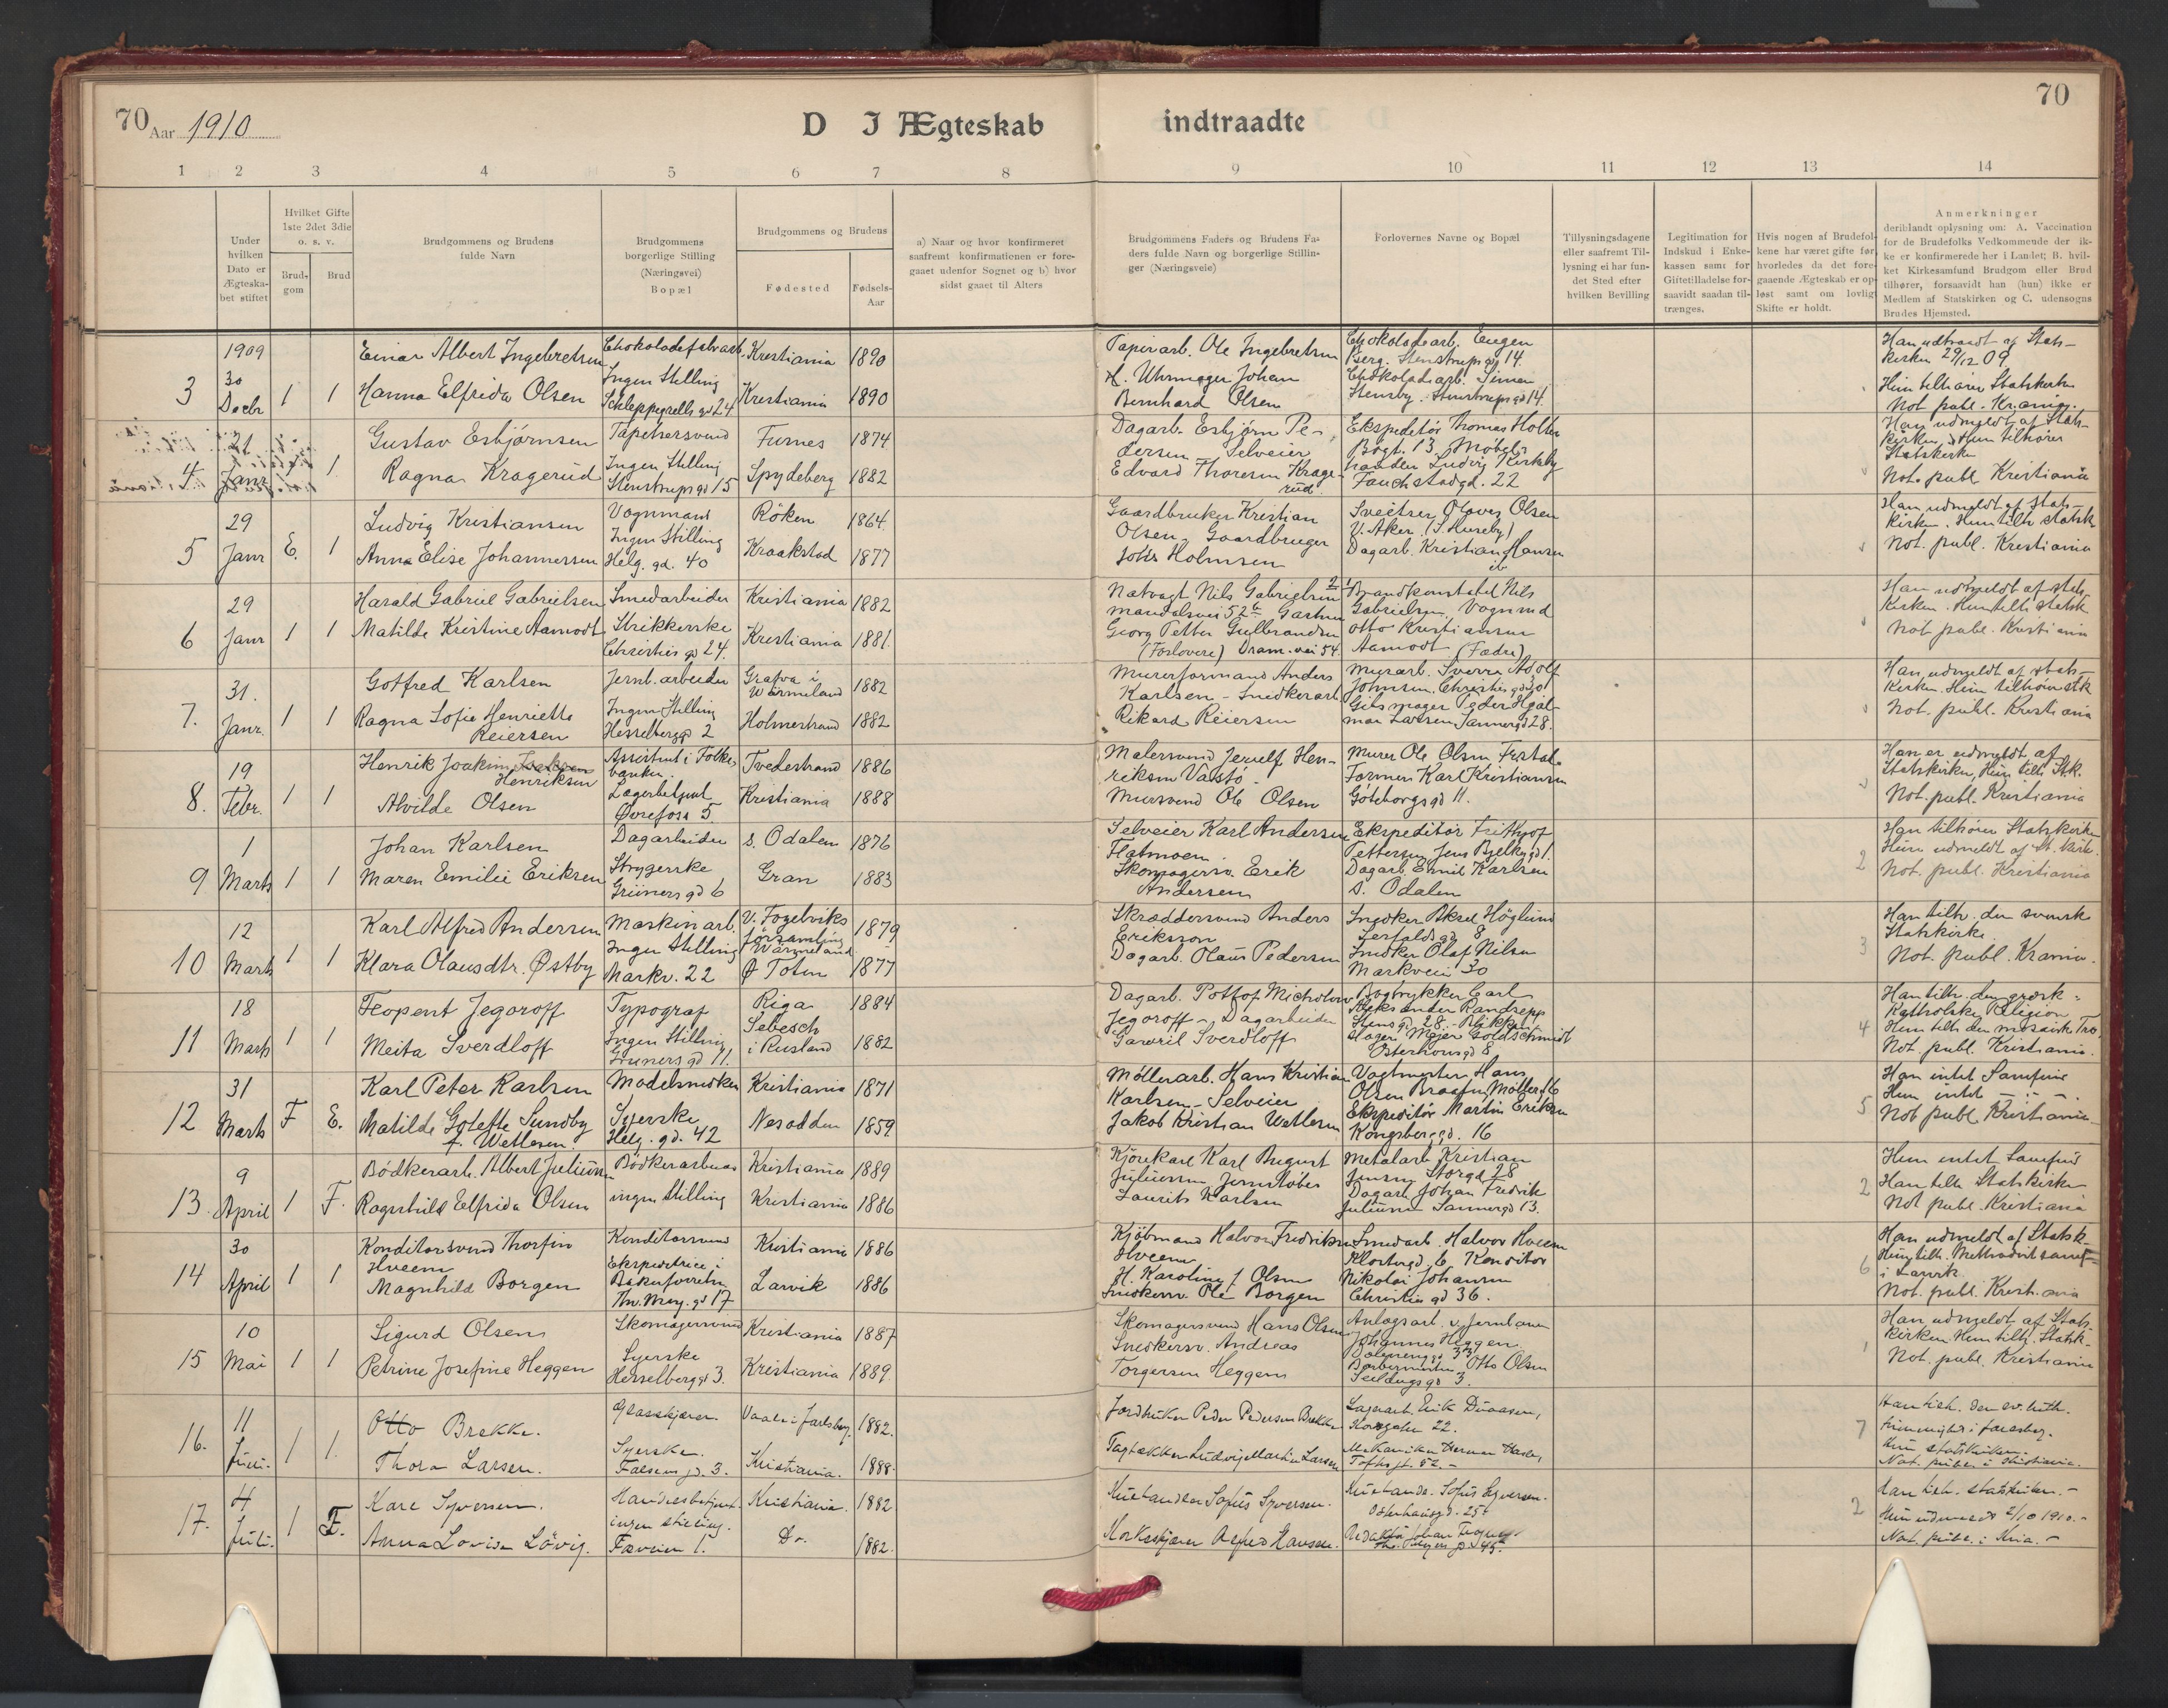 70 Aar 1910
D I Ægteskab indtraadte
70
1 2 3 4 5 6 7 8 9 10 11 12 13 14
Under hvilken Dato er Ægteska-bet stiftet
Hvilket Gifte 1ste 2det 3die o. s. v.
Brud-gom
Brud
Brudgommens og Brudens fulde Navn
Brudgommens borgerlige Stilling (Næringsvei) Bopæl
Brudgommens og Brudens
Fødested
Fødsels-Aar
a) Naar og hvor konfirmeret saafremt konfirmationen er fore-gaaet udenfor Sognet og b) hvor sidst gaaet til Alters
Brudgommens Faders og Brudens Fa-ders fulde Navn og borgerlige Stillin-ger (Næringsveie)
Forlovernes Navne og Bopæl
Tillysningsdagene eller saafremt Til-lysning ei har fun-det Sted efter hvilken Bevilling
Legitimation for Indskud i Enke-kassen samt for Giftetilladelse for-saavidt saadan til-trænges.
Hvis nogen af Brudefol-kene har været gifte før, hvorledes da det fore-gaaende Ægteskab er op-løst samt om lovlig Skifte er holdt.
Anmerkninger
deriblandt oplysning om: A. Vaccination for de Brudefolks Vedkommende der ik-ke er konfirmerede her i Landet; B. hvil-ket Kirkesamfund Brudgom eller Brud tilhører, forsaavidt han (hun) ikke er Medlem af Statskirken og C. udensogns Brudes Hjemsted.
3 1909 30 Decbr 1 1
Einar Albert Ingebretsen Kristiania 1890
Hanna Elfrida Olsen Ingen Stilling Schleppegrells gd 24 Kristiania 1890
Papirarb. Ole Ingebretsen
Uhrmager Johan Bernhard Olsen
Chokoladearb. Eugen Berg. Stenstrups gd 14.
Chokoladearb. Stensby. Stenstrups gd 14.
Han udtraadt af Stats-kirken 29/12 09
Hun tilhører Statskirken
Not. publ. Kr.ania.
4 21 Janr 1
Gustav Esbjørnsen Tapetsersvend Furnes 1874
Ragna Kragerud Ingen Stilling Stenstrups gd 15 Spydeberg 1882
Dagarb. Esbjørn Pe-dersen Selveier Edvard Thoresen Krage-rud
Ekspeditør Thomas Holter Bogt. 13. Møbel-handler Ludvig Kirkeby Fauchaldsgd. 22
Han udmeldt af Stats-kirken, Hun tilhører Statskirken
Not. publ. Kristiania
5 29 Janr E. 1
Ludvig Kristiansen Vognmand Röken 1864
Anna Elise Johannessen Ingen Stilling Helg. gd. 40 Kraakstad 1877
Gaardbruker Kristian Olsen. Gaardbruger Holmsen
Olaves Olsen V. Aker. (S. Huseby) Dagarb. Kristian Hansen ib
Han udmeldt af Stats-kirken. Hun tilh statsk
Not. publ. Kristiania
6 29 Janr 1 1
Harald Gabriel Gabrielsen Smedarbeider Kristiania 1882
Matilde Kristine Aamodt Strikkerske Christies gd 24. Kristiania 1881
Natvagt Nils Gabrielsen Gartner Georg Petter Gulbrandsen (Forlovere) Dram.vei 54.
Brandkonstabel Nils Gabrielsen, Vognmd Otto Kristiansen Aamodt (Fædre)
Han udmeldt af stats-kirken. Hun tilh statsk
Not publ. Kristiania
7. 31. Janr. 1 1
Gotfred Karlsen Jernb. arbeider Grafva i Wärmeland 1882
Ragna Sofie Henriette Reiersen Ingen Stilling Hesselbergs gd 2 Holmestrand 1882
Murerformand Anders Karlsen - Snedkerarb Rikard Reiersen
Murarb. Sverre Adolf Johnsen. Christies gd 30 Peder Hjal-mar Larsen, Sannergd 28.
Han udmeldt af stats-kirken. Hun tilhør stk
Not. publ. Kristiania
8. 19 Febr. 1 1
Henrik Joakim Henriksen Assistent i Folke-banken Tvedestrand 1886
Alvilde Olsen Øvrefoss 5. Kristiania 1888
Malersvend Hen-riksen Mursvend Ole Olsen
Murer Ole Olsen Former Karl Kristiansen Göteborgs gd 11.
Han er udmeldt af Statskirken, Hun tilh. Stk.
Not. publ. Kristiania
9 1 Marts 1 1
Johan Karlsen Dagarbeider S. Odalen 1876
Maren Emilie Eriksen Strygerske Grüners gd 6 Gran 1883
Selveier Karl Andersen Flatmoen. Skomagersv. Erik Andersen
Ekspeditør Frithjof Pettersen Jens Bjelkes gd 1. Dagarb Emil Karlsen S. Odalen
2
Han tilhører Statskirken Hun udmeldt af St. kirk.
Not. publ. Kristiania
10 12 Marts 1 1
Karl Alfred Andersen Maskinarb. V. Fogelviks församling Wärmland 1879
Klara Olausdtr. Østby Ingen Stilling Markv. 22 Ø Toten 1877
Skræddersvend Anders Eriksson Dagarb. Olaus Pedersen
Snedker Aksel Höglund 8 Snedker Olaf Nilsen Markveien 30
3
Han tilh. den svenske Statskirke
Not. publ. Krania.
11 18 Marts 1 1
Feopent Jegoroff Typograf Riga 1884
Meita Sverdloff Ingen Stilling Grüners gd 11 Sebesch i Rusland 1882
Dagarb. Jegoroff - Dagarbeider Sverdloff
Bogtrykker Carl Aleksander Randrepp Stensgd 28. Mejer Goldschmidt Osterhausgd 8
4
Han tilh. den græsk-Katholske Religion
Hun tilh den mosaiske Tro,
Not. publ. Kristiania.
12 31 Marts F E.
Karl Peter Karlsen Modelsnedker Kristiania 1871
Matilde Golette Sundby f. Wetlesen Syerske Helg. gd. 42 Nesodden 1859
Möllerarb. Hans Kristian Karlsen - Selveier Jakob Kristian Wetlesen
Vagtmester Hans Olsen Braaten, Møllergd 6 Ekspeditør Martin Eriksen Kongsberggd. 16
5
Han intet Samfund
Hun intet
Not publ Kristiania
13. 9 April 1 F.
Bödkerarb. Albert Juliussen Bödkerarbeider Kristiania 1889
Ragnhild Elfrida Olsen ingen Stilling Kristiania 1886
Kjörekarl Karl August Juliussen Laurits Karlsen
Metalarb Kristian Jensen Storgd 28 Dagarb Johan Fredrik Juliussen Sannergd 13.
2
Hun intet Samfund
Han tilh Statskirken
Not publ. Kristiania
14 30 April 1 1
Konditorsvend Thorfin Hveem Konditorsvend Kristiania 1886
Magnhild Borgen Ekspeditrice i Bakerforretn. Th. Mey. gd 17 Larvik 1886
Kjöbmand Halvor Fredriksen Hveem H. Karoline f Olsen Snedkersv. Ole Borgen
Smedarb. Halvor Hveem Klostergd. 6 Konditor Nikolai Johansen Christies gd 36.
6
Han udmeldt af Statsk.
Hun tilh. Methodistsamf i Larvik.
Not. publ. Kristiania
15 10 Mai 1 1
Sigurd Olsen Skomagersvend Kristiania 1887
Petrine Josefine Heggen Syerske Hesselbergsgd 3. Kristiania 1889
Skomagersvend Hans Olsen Snedkersv. Andreas Torgersen Heggen
Johannes Heggen. Barbermester Otto Olsen Seildugsgd 3.
Han udmeldt af Stats-kirken. Hun tilh. Statsk.
Not. publ. Kristiania
16. 11 Juni. 1 1.
Otto Brekke. Vaale i Jarlsberg. 1882.
Thora Larsen. Syerske. Falsens gd. 3. Kristiania. 1888.
Jordbruker Peder Pedersen Brekke
Tagtækker Ludvig Martin Larsen
Lagerarb. Erik Korsgaten 22.
Mekaniker Herman Toftesgt. 52. -
7
Han tilh. den ev. luth. frimenighed i Jarlsberg.
Hun statskirken.
Not. publ. i Kristiania.
17. 4 Juli. 1 F.
Kare Syversen. Handelsbetjent Kristiania. 1882.
Anna Lovise Lövig. ingen stilling. 1. Do. 1882.
Sofus Syversen.
Alfred Hansen.
Sofus Syversen. Osterhausgd. 25.
Redaktør Johan 45.
2
Han tilh. statskirken. -
Hun udmeldt 2/10 1910. -
Not. publ. i Kria. -